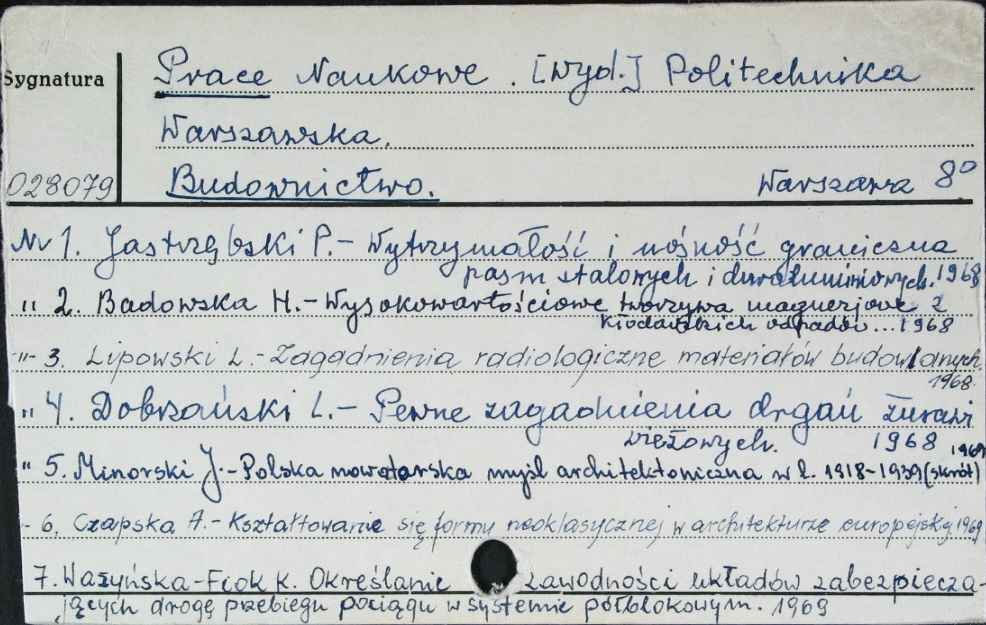 Sygnatura
Prace Naukowe. [Wyd.] Politechnika
Warszawska.
028079 Budownictwo. Warszawa 8°
Nr 1. Jastrzębski P.- Wytrzymałość i nośność graniczna
pasm stalowych i duraluminiowych. 1968
" 2. Badowska H.- Wysokowartościowe tworzywa magnezjowe z
kłodawskich odpadów... 1968
-"- 3. Lipowski L.- Zagadnienia radiologiczne materiałów budowlanych.
1968.
" 4. Dobrzański L.- Pewne zagadnienia drgań żurawi
wieżowych. 1968
" 5. Minorski J.- Polska nowatorska myśl architektoniczna w l. 1918-1939 (skrót) 1969
- 6. Czapska A.- Kształtowanie się formy neoklasycznej w architekturze europejskiej. 1969
7. Ważyńska-Fiok K. Określanie zawodności układów zabezpiecza-
jących drogę przebiegu pociągu w systemie półblokowym. 1969